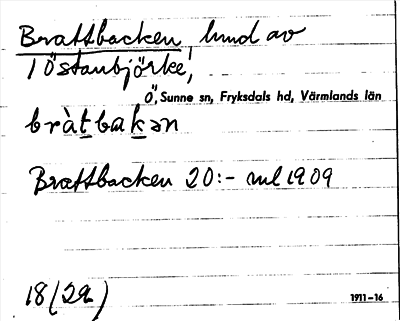 Brattbacken, lund av
1 Östanbjörke,
Ö, Sunne sn, Fryksdals hd, Värmlands län
bràtbakən
Brattbacken 20:- ml 1909
18 (2a)
1911–16